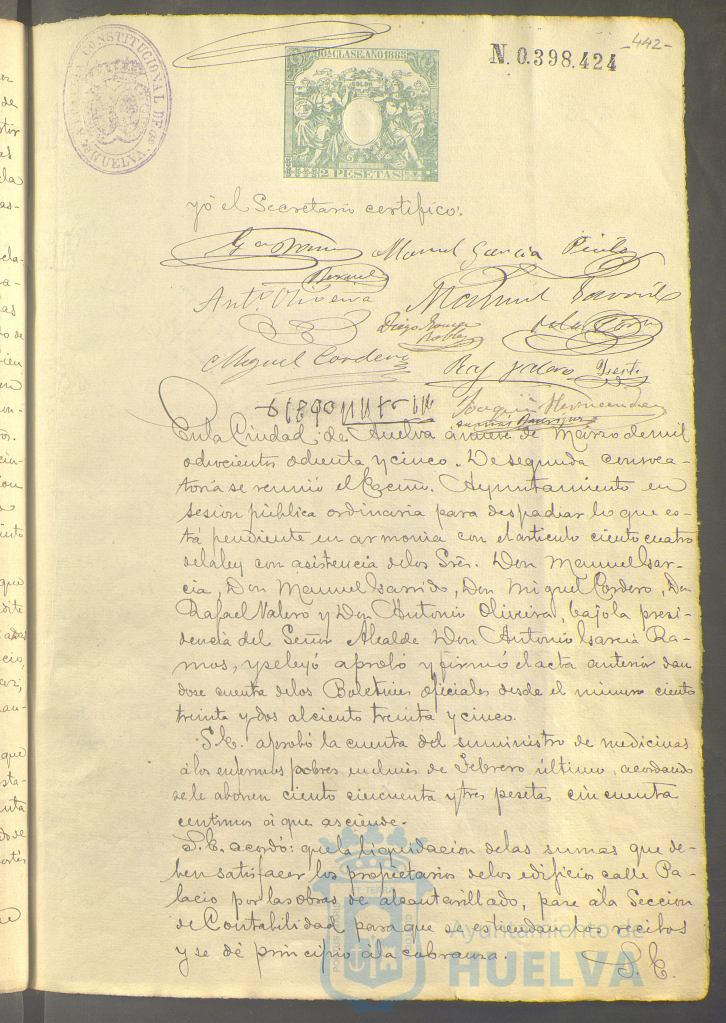 -442-
N. 0.398.424
10ª CLASE. AÑO 1885
2 PESETAS
CONSTITUCIONAL DE
HUELVA
yó el Secretario certifico:
Manuel Garcia Pinto
Antº Oliveira
Manuel Garrido
Diego
Robles
Miguel Cordero
Joaquin Hernandez
En la Ciudad de Huelva á nueve de Marzo de mil
ochocientos ochenta y cinco. De segunda convoca-
toria se reunió el Excmo. Ayuntamiento en
sesion pública ordinaria para despachar lo que es-
tá pendiente en armonia con el articulo ciento cuatro
de la ley con asistencia de los Sres. Don Manuel Gar-
cia, Don Manuel Garrido, Don Miguel Cordero, Don
Rafael Valero y Don Antonio Oliveira, bajo la presi-
dencia del Señor Alcalde Don Antonio Garcia Ra-
mos, y se leyó aprobó y firmó el acta anterior dan
dose cuenta de los Boletines oficiales desde el número ciento
treinta y dos al ciento treinta y cinco.
S.E. aprobó la cuenta del suministro de medicinas
á los enfermos pobres en el mes de Febrero último, acordando
se le abonen ciento cincuenta y tres pesetas cincuenta
centimos á que asciende.
S.E. acordó: que la liquidacion de las sumas que de-
ben satisfacer los propietarios de los edificios calle Pa-
lacio por las obras de alcantarillado, pase á la Seccion
de Contabilidad para que se estiendan los recibos
y se dé principio á la cobranza.
S.E.
Ayuntamiento de
HUELVA